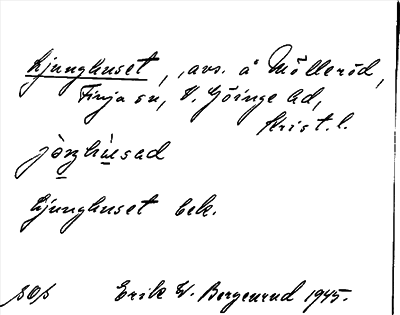 Ljunghuset, avs. å Mölleröd,
Finja sn, V. Göinge hd,
Krist. l.
jòŋhùsad
Ljunghuset bek.
sOs Erik W. Bergenrud 1945.